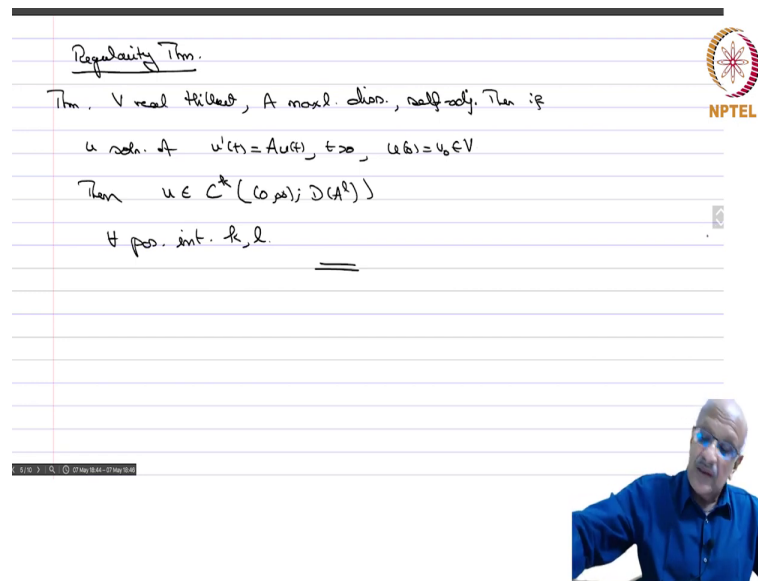 Regularity Thm.
NPTEL
Thm. V real Hilbert, A maxl. diss., self-adj. Then if
u soln. of u'(t) = Au(t), t>0, u(0) = u₀ ∈ V
Then u ∈ C^k ((0,∞); D(A^l))
∀ pos. int. k, l.
5/10 07 May 18:44 – 07 May 18:46